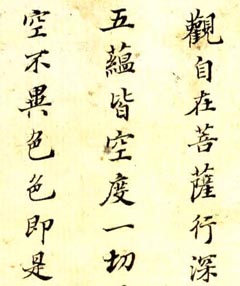 觀自在菩薩行深
五蘊皆空度一切
空不異色色即是